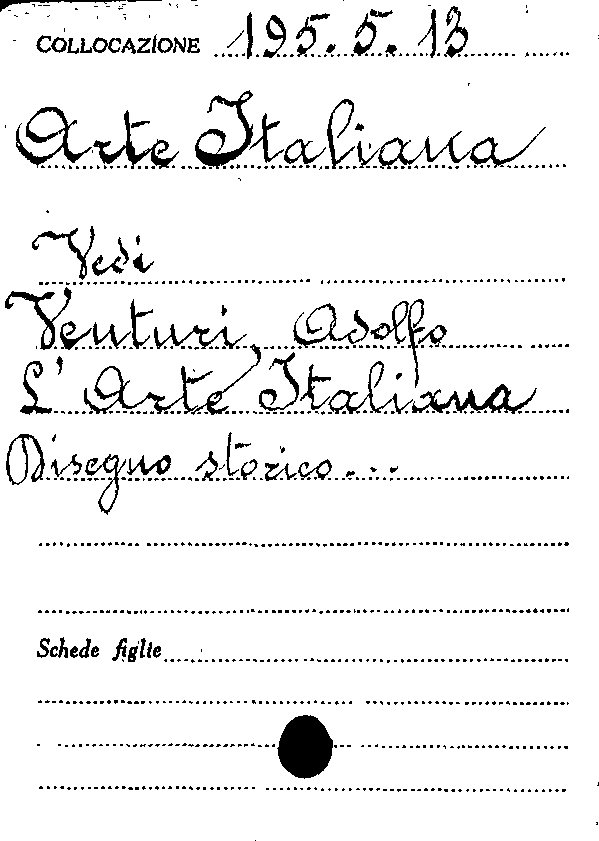 COLLOCAZIONE 195.5.13
Arte Italiana
Vedi
Venturi, Adolfo
L'Arte Italiana
Disegno storico...
Schede figlie